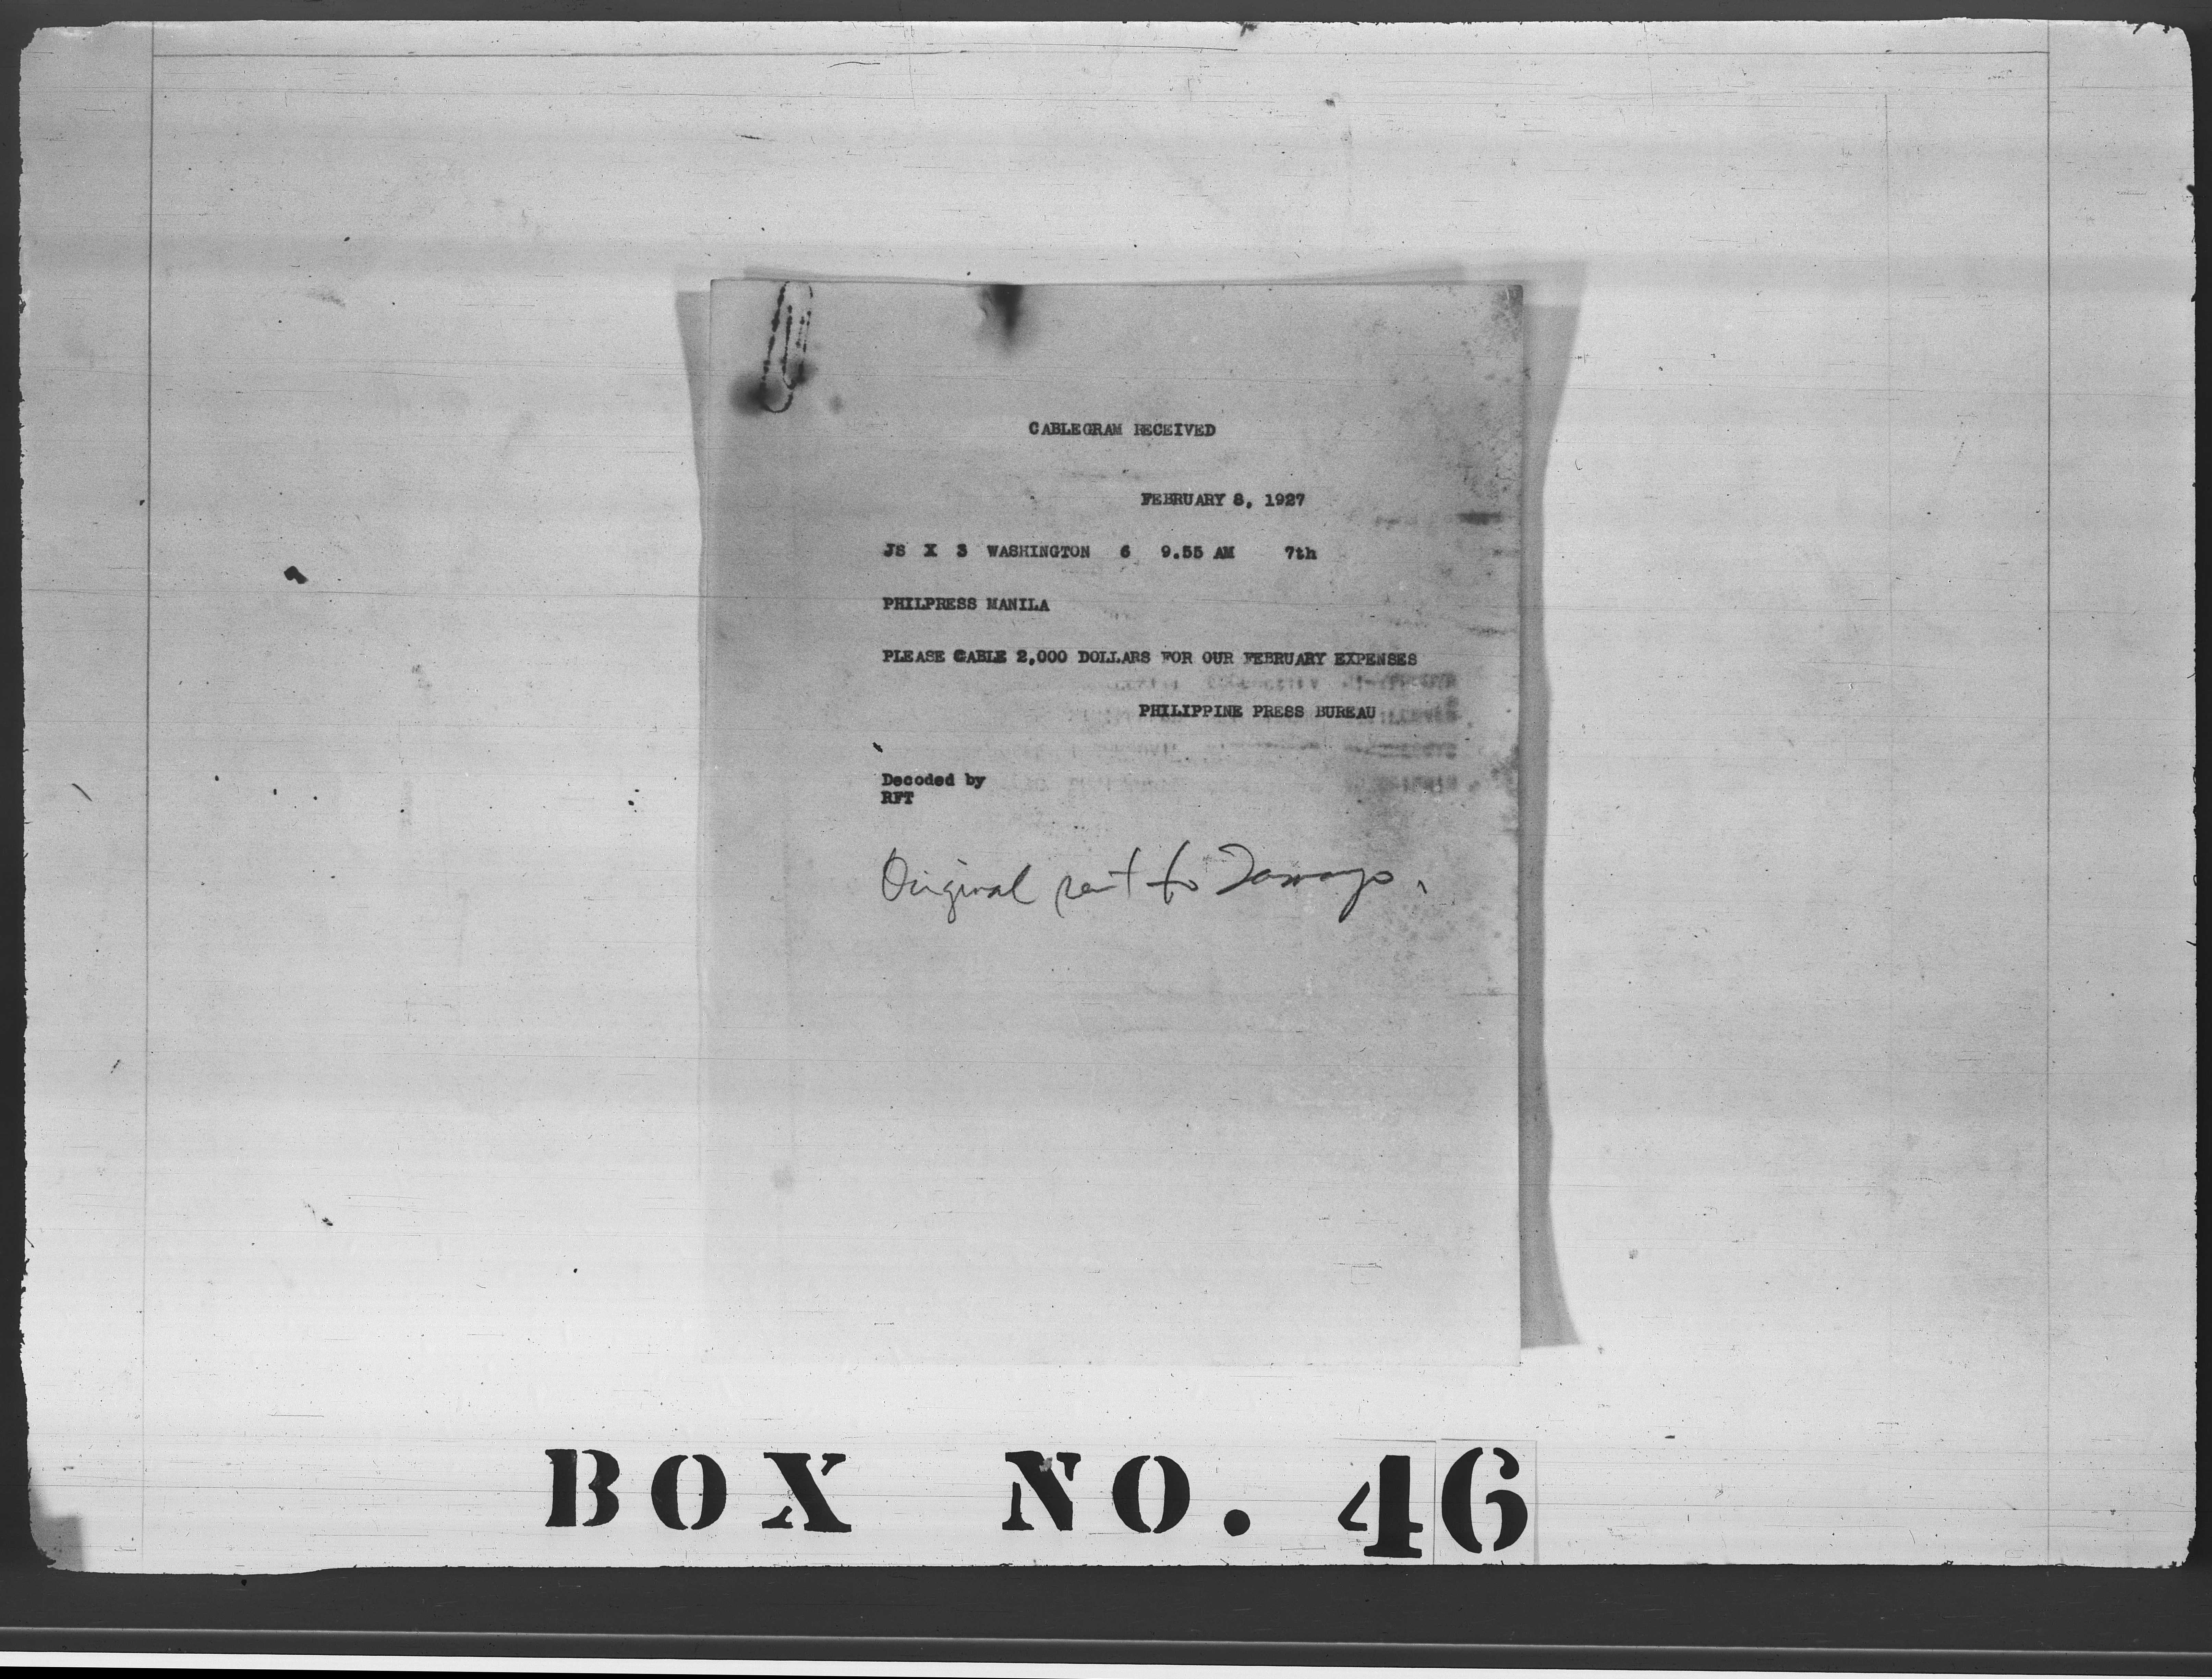 CABLEGRAM RECEIVED
FEBRUARY 8, 1927
JS X 3 WASHINGTON 6 9.55 AM 7th
PHILPRESS MANILA
PLEASE CABLE 2,000 DOLLARS FOR OUR FEBRUARY EXPENSES
PHILIPPINE PRESS BUREAU
Decoded by
RFT
Original sent to Tamayo.
BOX NO. 46